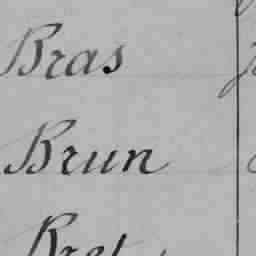 Bras
Brun
Bret